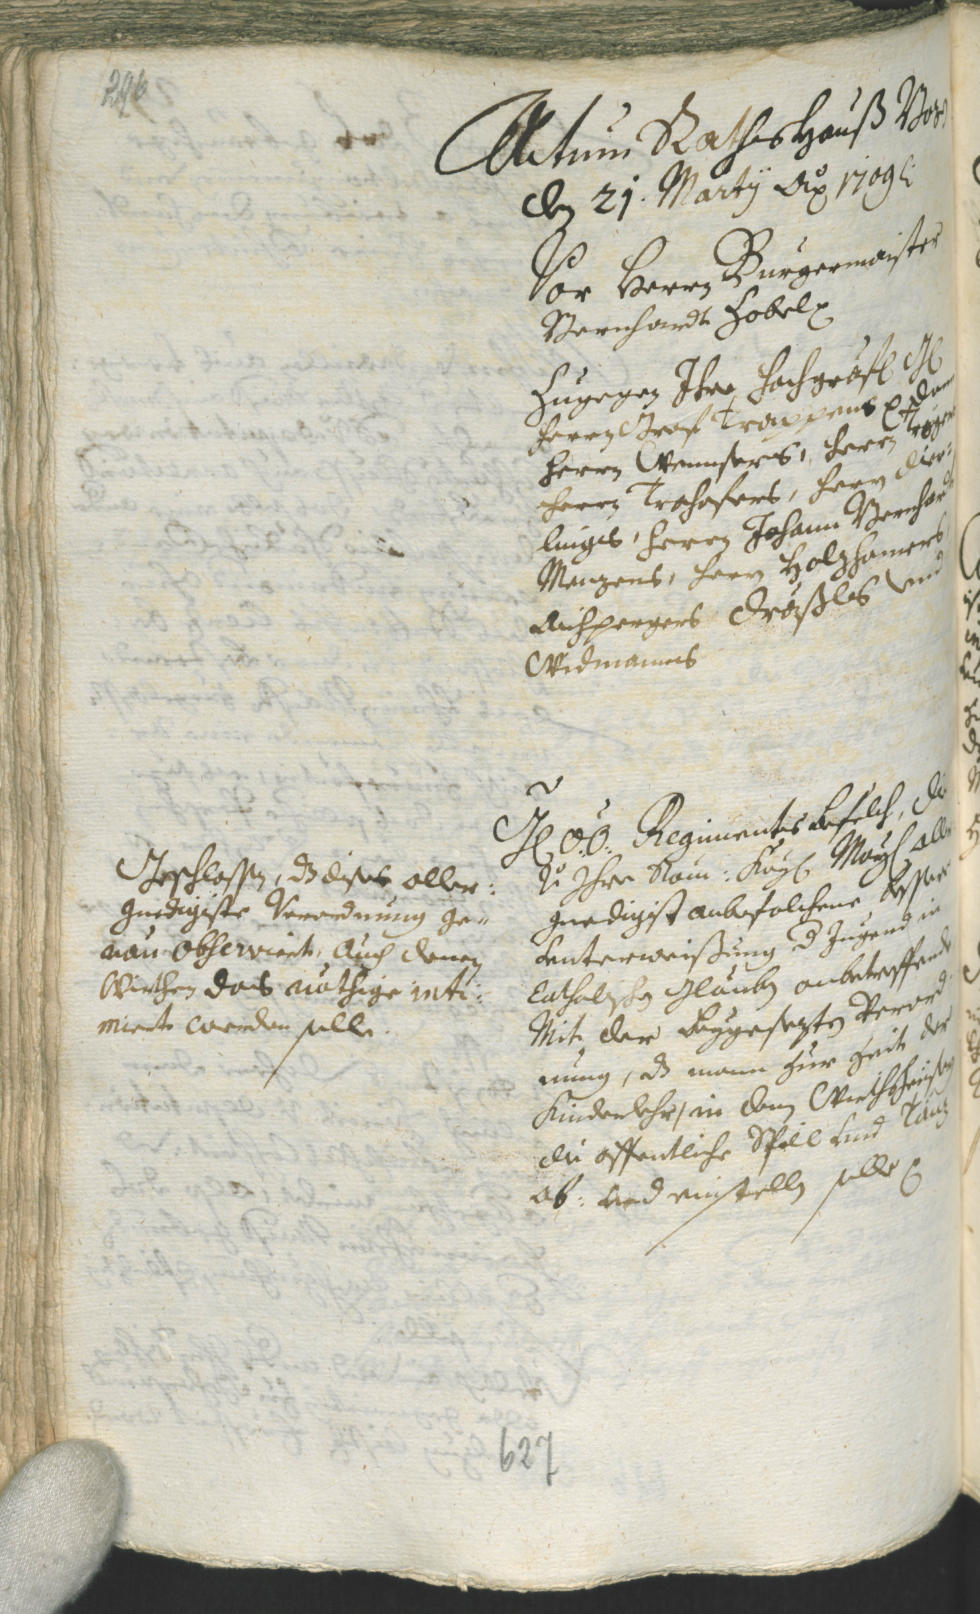 296
Actum Rathshauß
den 21. Martÿ Aõ 1709
Vor Herrn Burgermaister
Bernhardt Hobel
Zugegen Ihro hochgräfl
Herrn Graf Trappens
Herrn Wennsers, Herrn
Herrn Trohofers, Herrn
lings, Herrn Johann Bernhardt
Menzens, Herrn Holzhamers
Aichpergers Dräxls und
Widmanns
O: Ö: Regiments Befelch, die
Von Ihro Röm: Kaÿ: Maÿ: aller
gnedigist anbefolchene bessere
Underweisung der Jugend in
Catholischen Glauben anbetreffende
Mit der beygesezten Verord
nung, daß mann zur Zeit der
Kinderlehr, in den Wirthsheusern
die offentliche Spill und Tänz
ab: und einstellen solle
Geschlossen, daß dises aller:
gnedigiste Verordnung ge=
nau observiert, auch denen
Wirthen das nöthige inti:
miert werden solle.
627